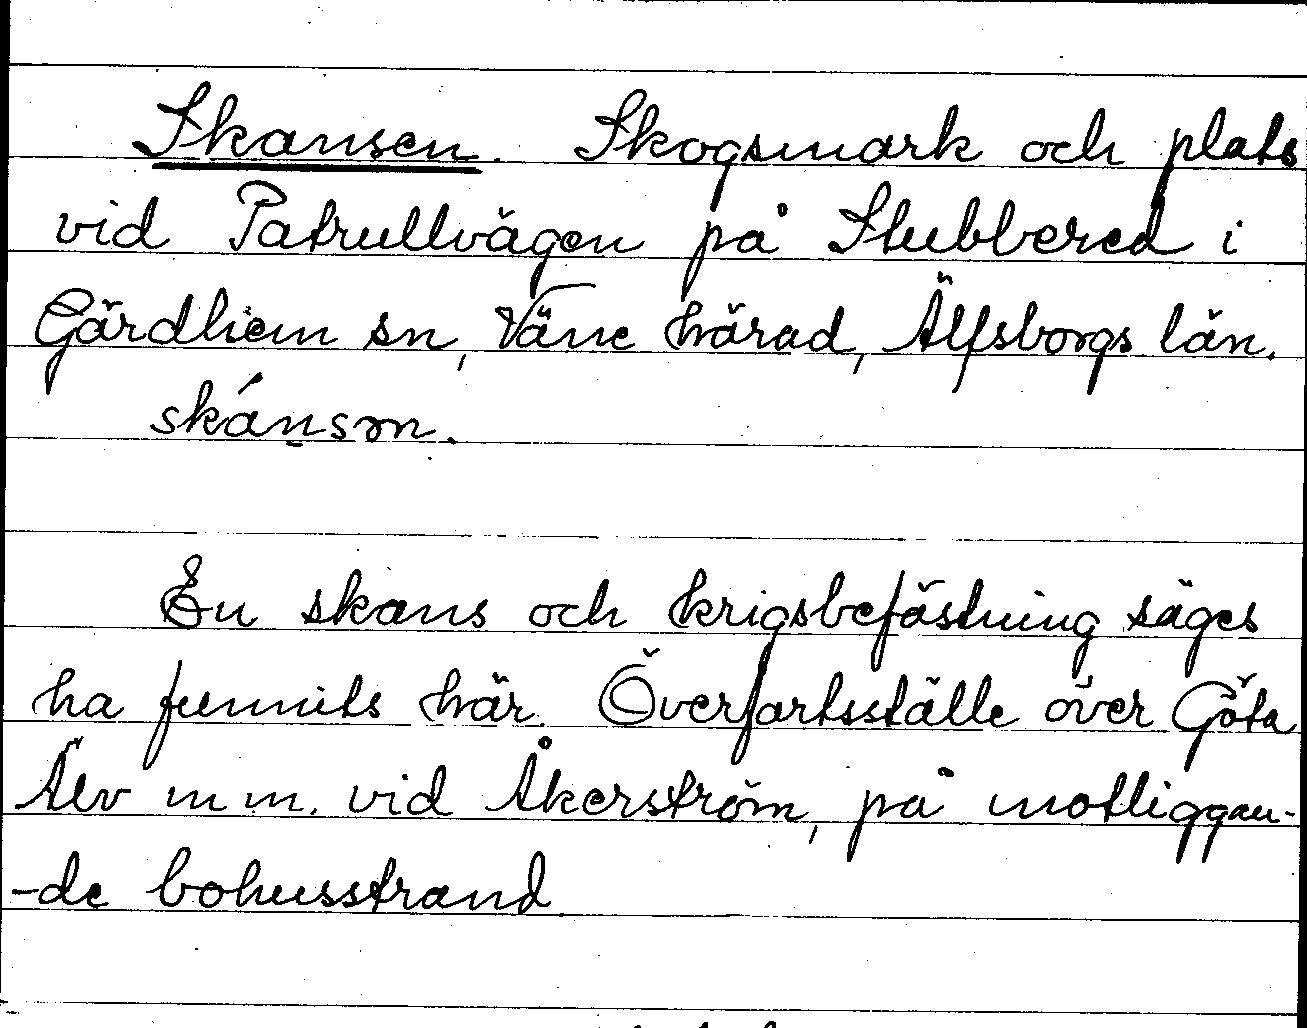 Skansen. Skogsmark och plats
vid Patrullvägen på Stubbered i
Gärdhem sn, Väne härad, Älfsborgs län.
skánsɷn.
En skans och krigsbefästning säges
ha funnits här. Överfartsställe över Göta
Älv m m. vid Åkerström, på motliggan-
-de bohusstrand